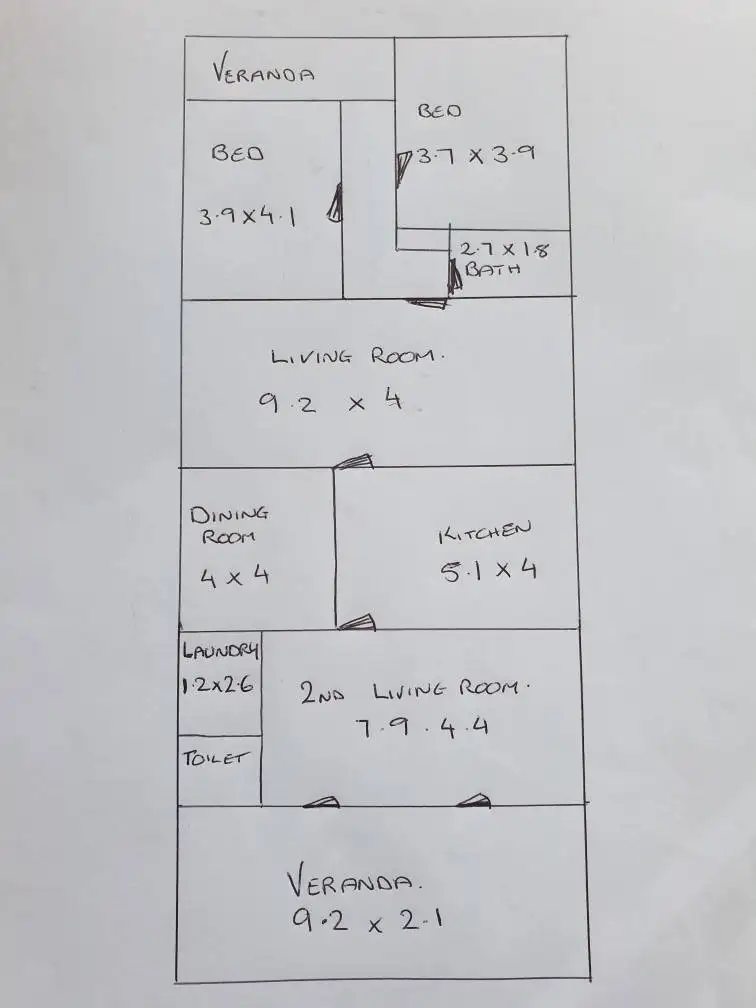 VERANDA
BED
3.7 x 3.9
BED
3.9 x 4.1
2.7 x 1.8
BATH
LIVING ROOM.
9.2 x 4
DINING
ROOM
4 x 4
KITCHEN
5.1 x 4
LAUNDRY
1.2x2.6
2ND LIVING ROOM.
7.9.4.4
TOILET
VERANDA.
9.2 x 2.1